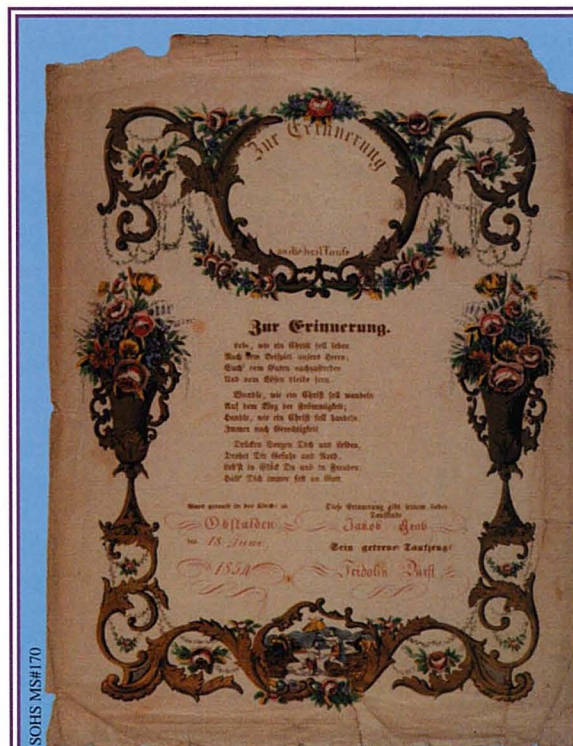 Zur Erinnerung
an die heil Taufe
Zur Erinnerung.
Lebe, wie ein Christ soll leben
Nach dem Beispiel unsers Herrn;
Such' dem Guten nachzustreben
Und vom Bösen bleibe fern.
Wandle, wie ein Christ soll wandeln
Auf dem Weg der Frömmigkeit;
Handle, wie ein Christ soll handeln:
Immer nach Gerechtigkeit
Drücken Sorgen Dich und Leiden,
Drohet Dir Gefahr und Noth,
Leb'st in Glück Du und in Freuden:
Halt' Dich immer fest an Gott.
Ward getauft in der Kirche zu
Obstalden
den 18 Juni
1854
Diese Erinnerung gibt seinem lieben
Taufkinde
Jakob Grob
Sein getreue Taufzeuge
Fridolin Durst
SOHS MS#170